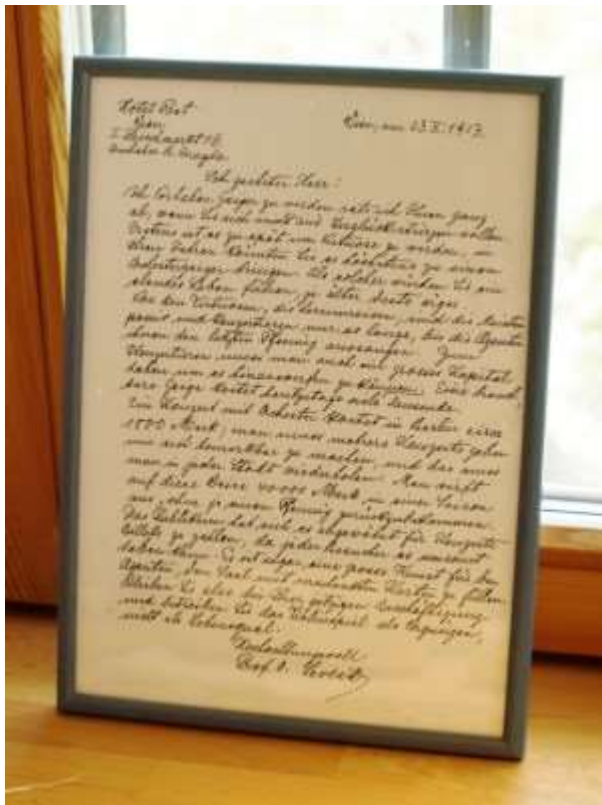 Hotel Post
Wien
I. Fleischmarkt 16
Wien, am 23.X.1913.
Sehr geehrter Herr!
zu werden rate ich Ihnen ganz
ab, wenn Sie sich nicht ins Unglück stürzen wollen.
Erstens ist es zu spät um Virtuose zu werden, in
Ihren Jahren könnten Sie es höchstens zu einem
Orchestergeiger bringen. Als solcher würden Sie ein
elendes Leben führen,
Von den Virtuosen, die und die Meisten
nur so lange, bis die Agenten
ihnen den letzten Pfennig aussaugen. Zum
muss man auch ein grosses Kapital
haben um es hinauswerfen zu können. Eine
Geige kostet heutzutage viele Tausende.
Ein Konzert mit Orchester kostet in Berlin circa
1500 Mark; man muss mehrere Konzerte geben
um sich bemerkbar zu machen, und das muss
man in jeder Stadt wiederholen. Man wirft
auf diese Weise 20000 Mark in einer Saison
aus, ohne je einen Pfennig zurückzubekommen.
Das Publikum hat sich es abgewöhnt für Konzerte
Billets zu zahlen, da jeder Besucher es umsonst
haben kann. Es ist sogar eine grosse Kunst für den
Agenten den Saal mit Karten zu füllen.
Bleiben Sie also bei Ihrer jetzigen Beschäftigung
und betreiben Sie das Violinspiel als Vergnügen,
nicht als Lebensqual.
Hochachtungsvoll
Prof. O. Sevcik